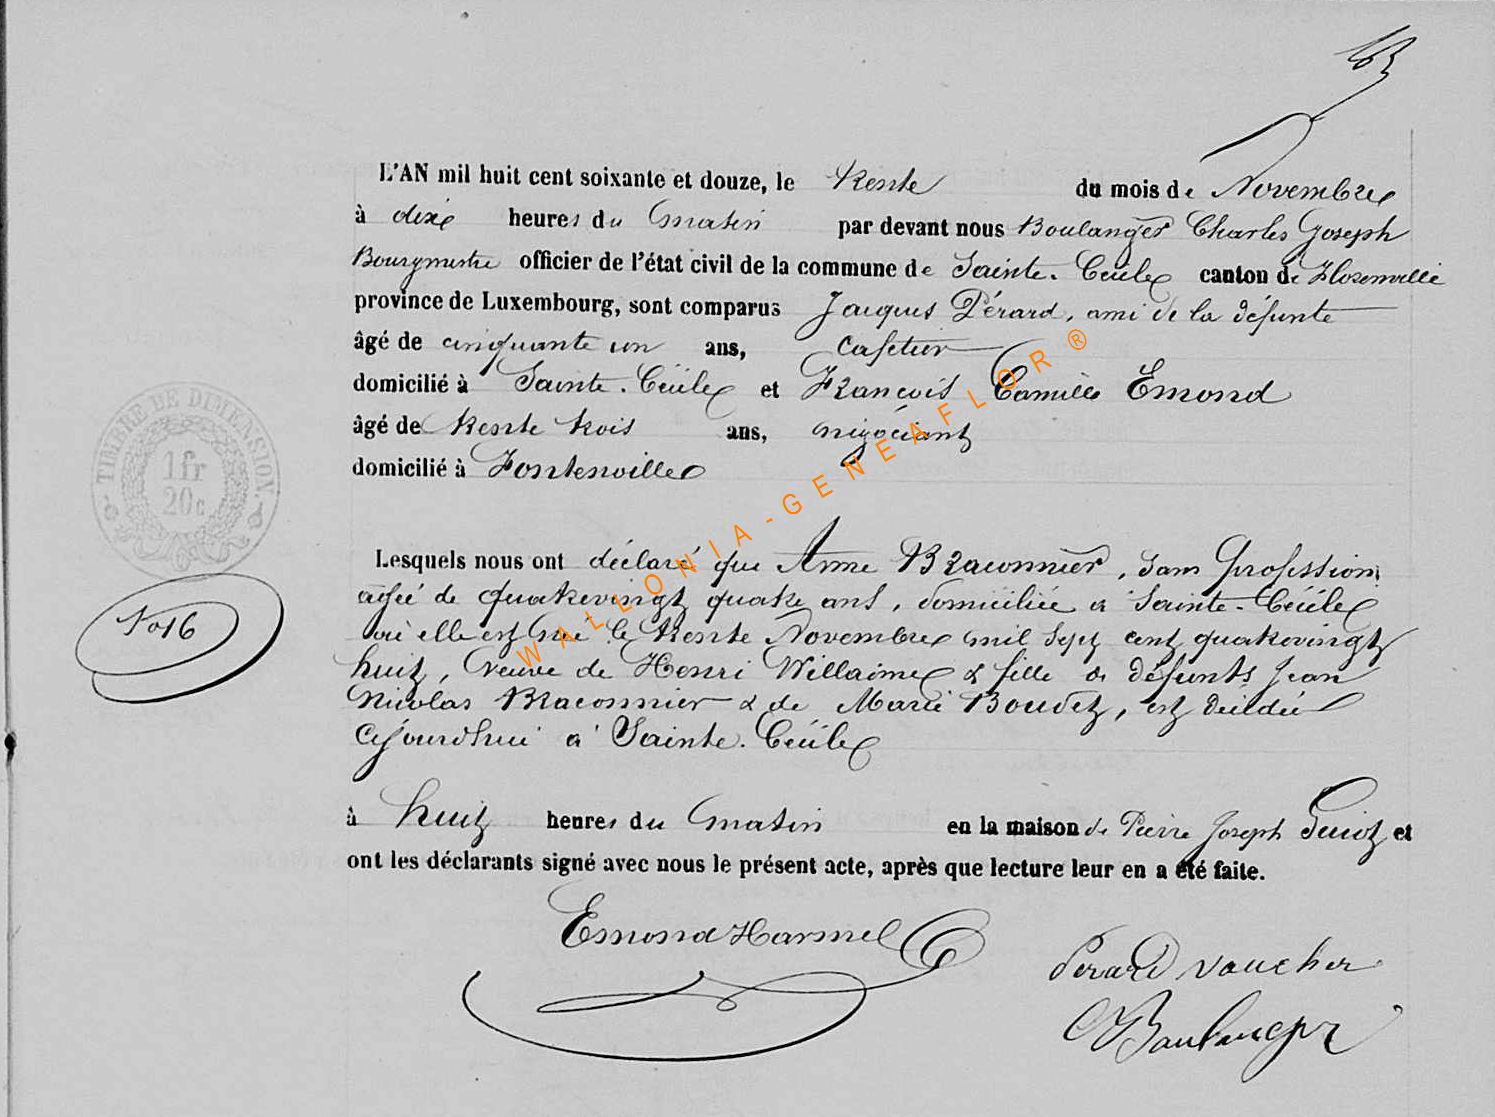 L'AN mil huit cent soixante et douze, le trente du mois de Novembre
à dix heures du matin par devant nous Boulanger Charles Joseph
Bourgmestre officier de l'état civil de la commune de Sainte-Cécile canton de Florenville
province de Luxembourg, sont comparus Jacques Pérard, ami de la défunte
âgé de cinquante un ans, cafetier
domicilié à Sainte-Cécile et François Camille Emond
âgé de trente trois ans, négociant
domicilié à Fontenoille
TIMBRE DE DIMENSION.
1 fr
20 c
Lesquels nous ont déclaré que Anne Braconnier, sans profession,
agée de quatrevingt quatre ans, domiciliée à Sainte-Cécile
No 16
où elle est née le trente Novembre mil sept cent quatrevingt
huit, veuve de Henri Willaime & fille de défunts Jean
Nicolas Braconnier & de Marie Boudet, est décédée
cejourd'hui à Sainte-Cécile
à huit heures du matin en la maison de Pierre Joseph Guiot et
ont les déclarants signé avec nous le présent acte, après que lecture leur en a été faite.
Emond Harmel
Perard Vaucher
Boulanger
WALLONIA-GENEAFLOR®